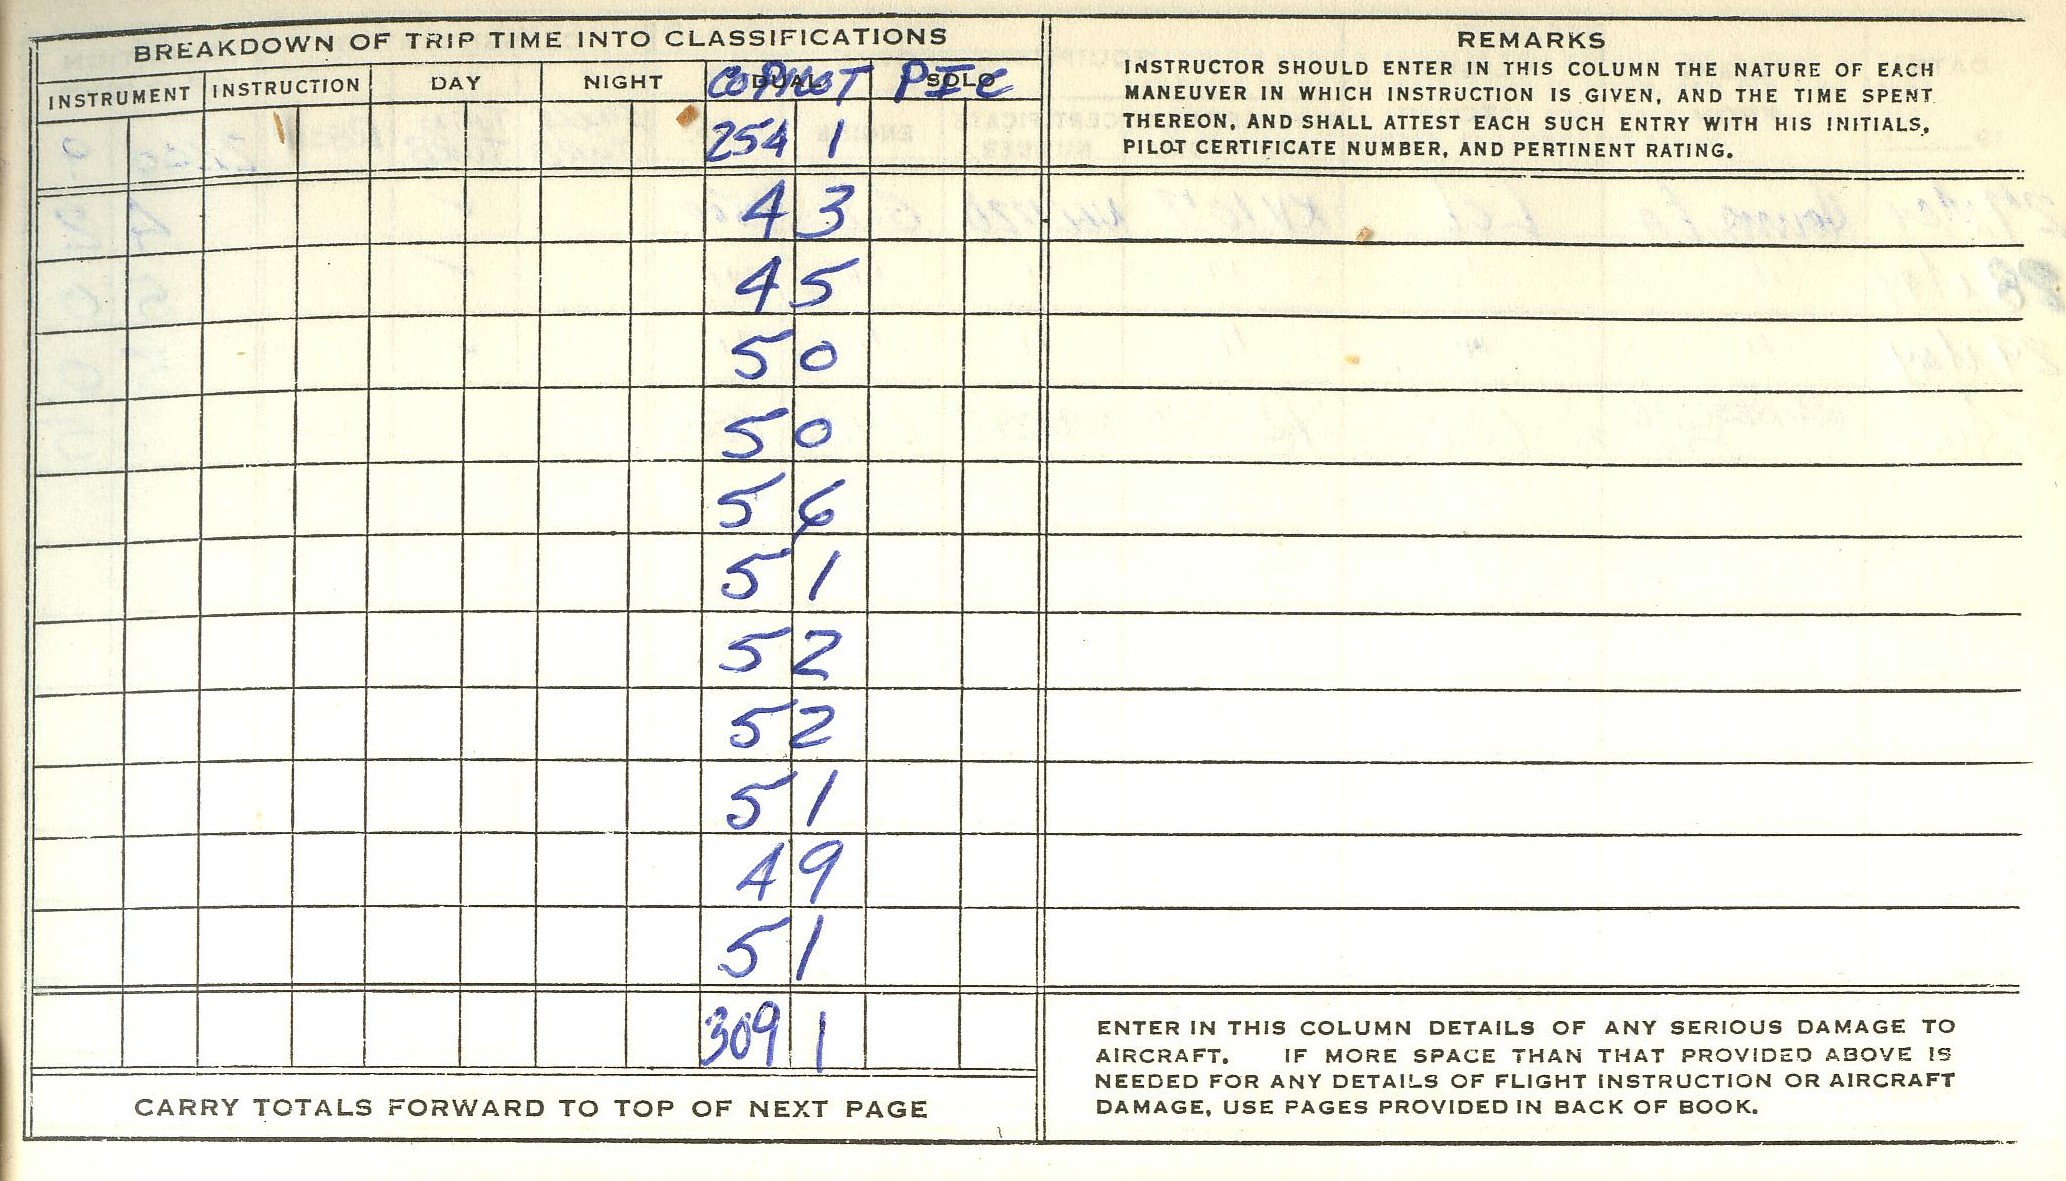 BREAKDOWN OF TRIP TIME INTO CLASSIFICATIONS
INSTRUMENT INSTRUCTION DAY NIGHT COPILOT SOLO PIC
254 1
4 3
4 5
5 0
5 0
5 6
5 1
5 2
5 2
5 1
4 9
5 1
309 1
CARRY TOTALS FORWARD TO TOP OF NEXT PAGE
REMARKS
INSTRUCTOR SHOULD ENTER IN THIS COLUMN THE NATURE OF EACH
MANEUVER IN WHICH INSTRUCTION IS GIVEN, AND THE TIME SPENT
THEREON, AND SHALL ATTEST EACH SUCH ENTRY WITH HIS INITIALS,
PILOT CERTIFICATE NUMBER, AND PERTINENT RATING.
ENTER IN THIS COLUMN DETAILS OF ANY SERIOUS DAMAGE TO
AIRCRAFT. IF MORE SPACE THAN THAT PROVIDED ABOVE IS
NEEDED FOR ANY DETAILS OF FLIGHT INSTRUCTION OR AIRCRAFT
DAMAGE, USE PAGES PROVIDED IN BACK OF BOOK.